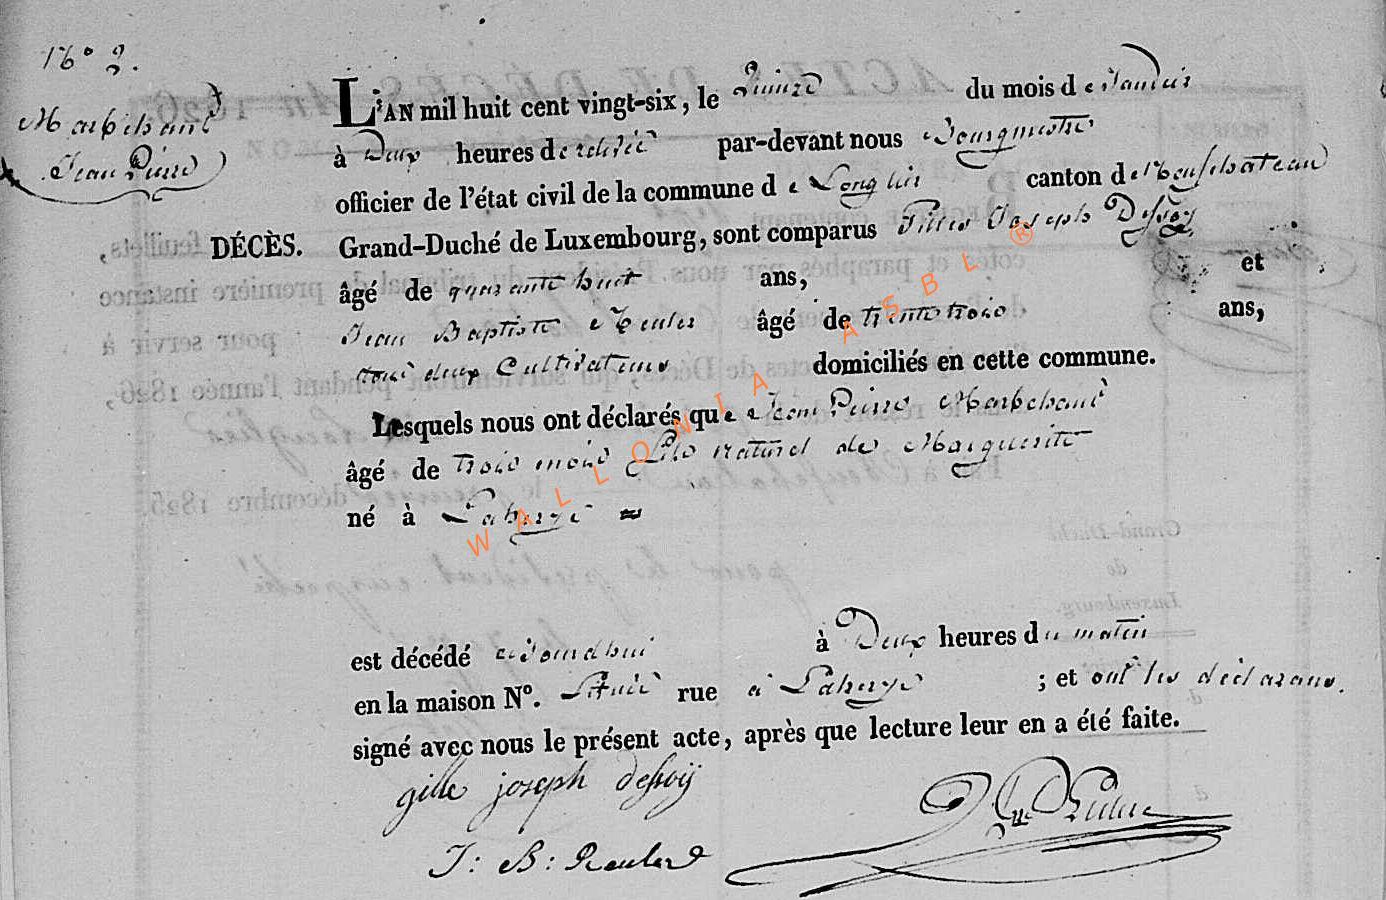 N° 2.
Marbehant
Jean Pierre
L'AN mil huit cent vingt-six, le Quinze du mois de Janvier
à Deux heures de relevée par-devant nous Bourgmestre
officier de l'état civil de la commune de Longlier canton de Neufchateau
DÉCÈS. Grand-Duché de Luxembourg, sont comparus Gilles Joseph Dessoy
âgé de quarante huit ans, et
Jean Baptiste âgé de trente trois ans,
tous deux Cultivateurs domiciliés en cette commune.
Lesquels nous ont déclarés que Jean Pierre Marbehant
âgé de trois mois fils naturel de Marguerite
né à Laherye
est décédé aujourdhui à Deux heures du matin
en la maison N°. située rue à Laherye ; et ont les déclarans
signé avec nous le présent acte, après que lecture leur en a été faite.
gille joseph dessoij
J: B:
WALLONIA ASBL ®